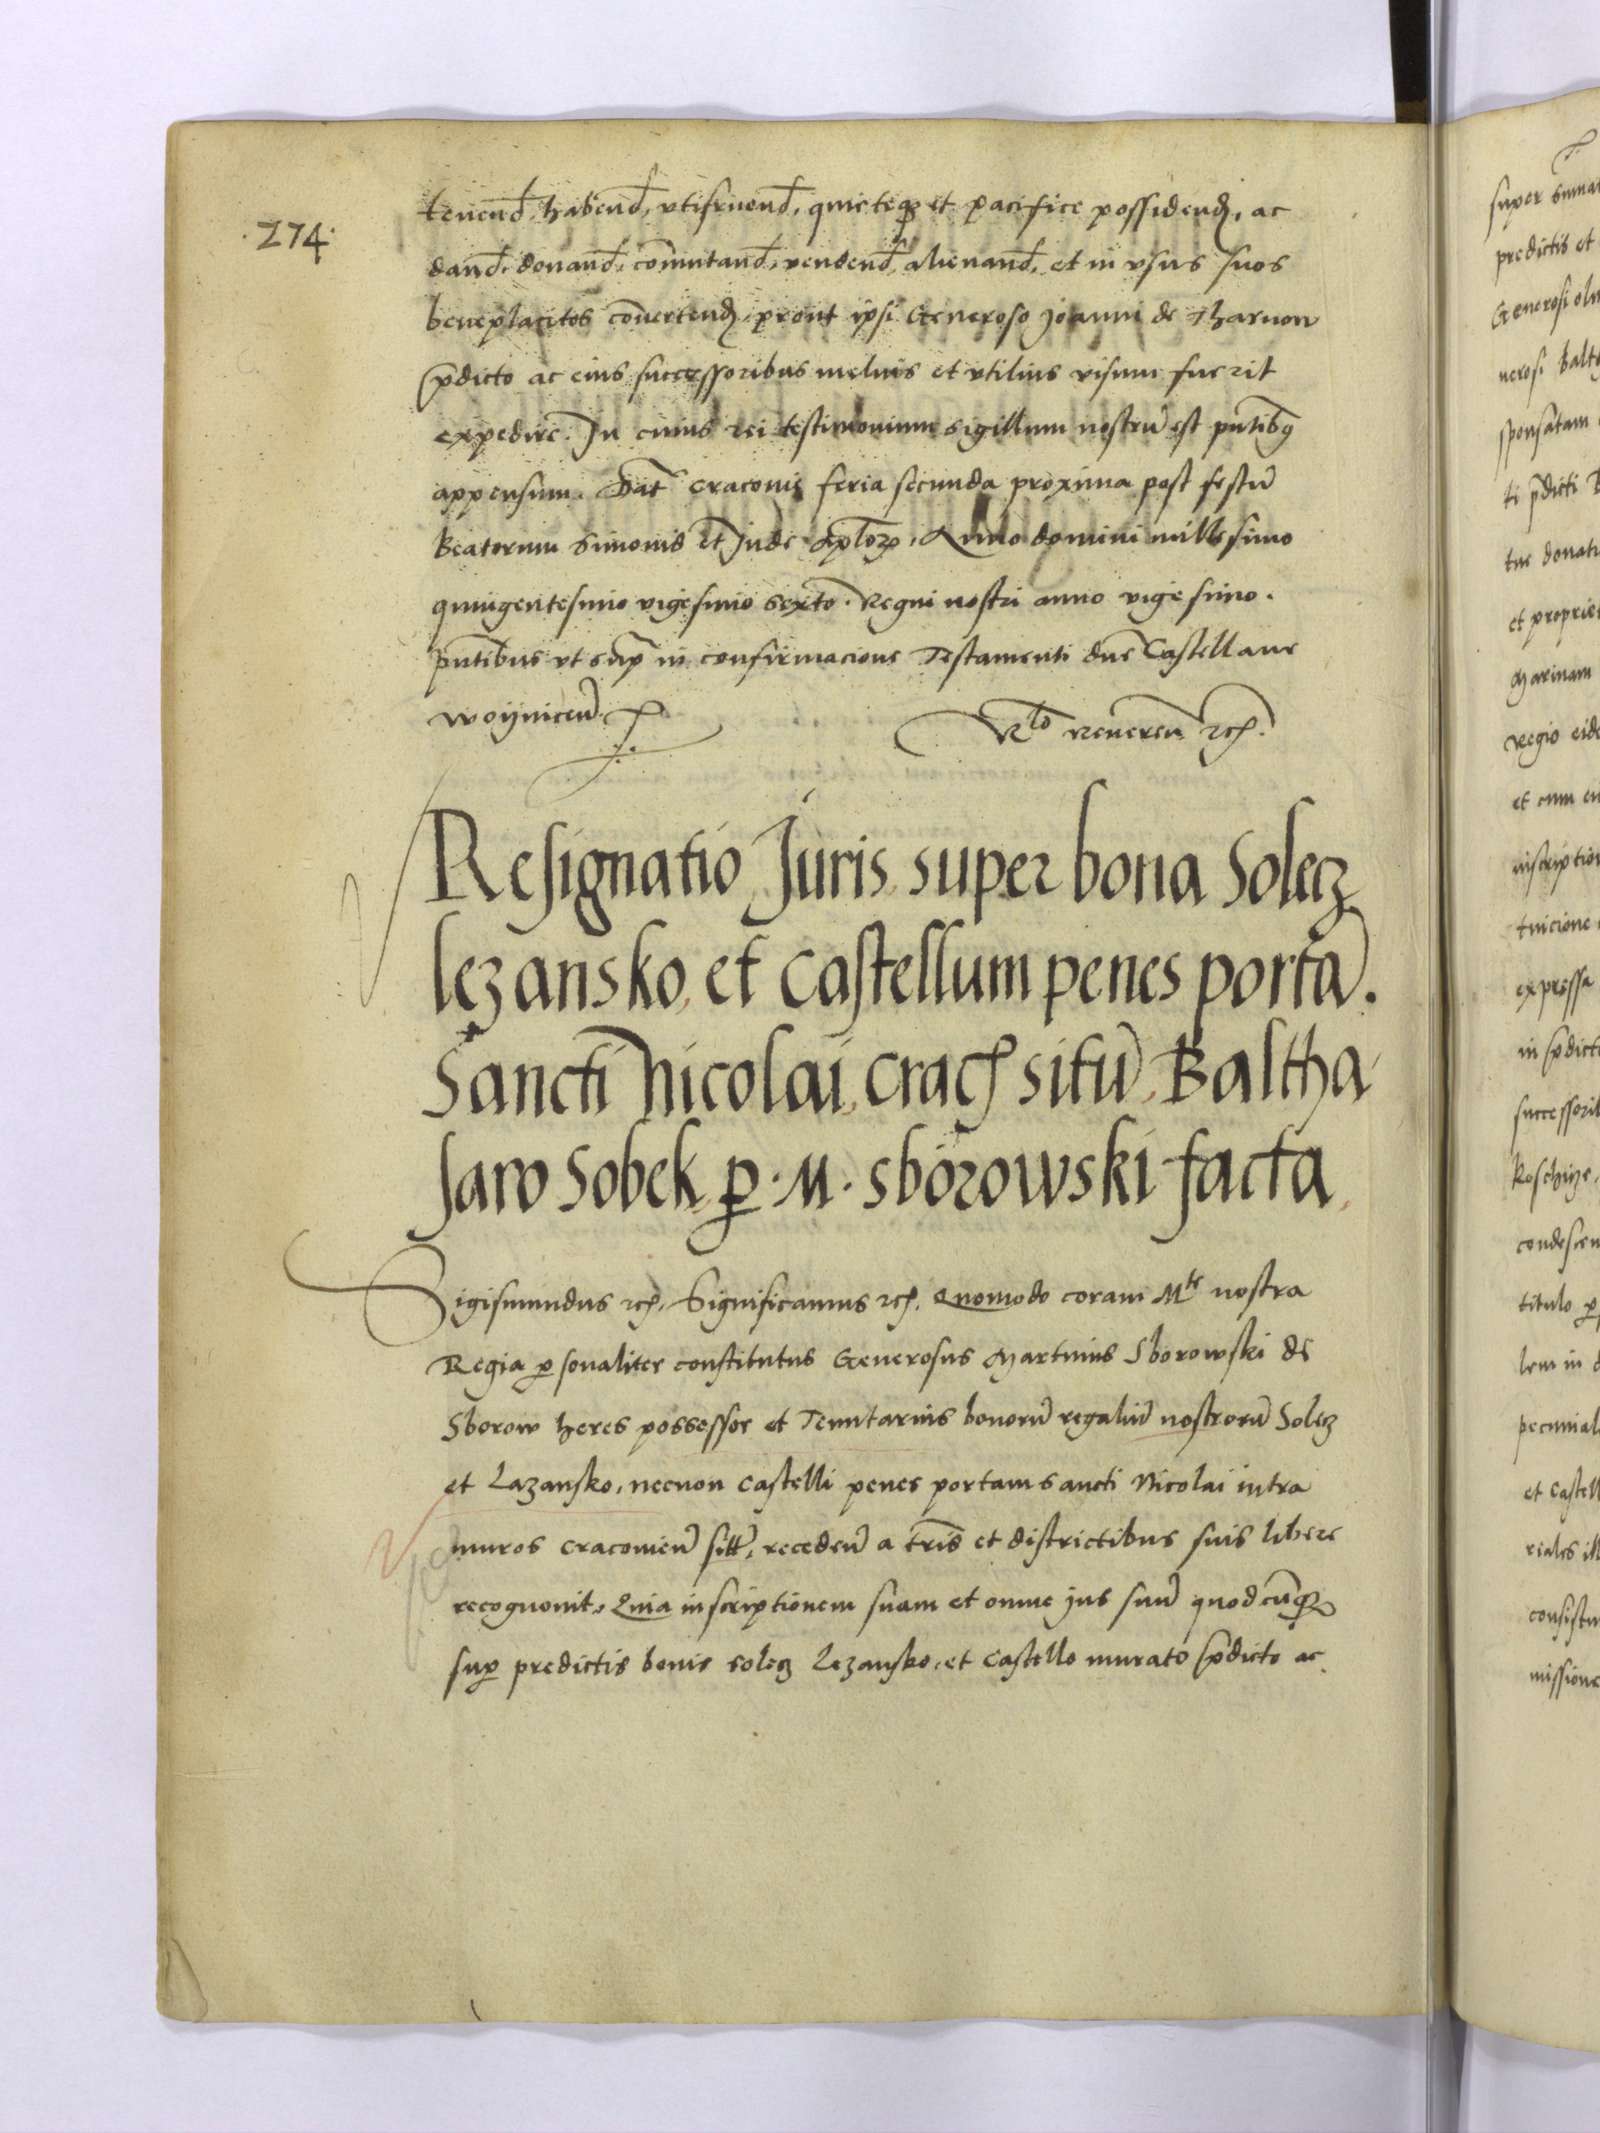 .274.
tenend, habend, vtifruend, quieteqз et pacifice possidendꝭ, ac
dand, donand, cōmutand, vendend, alienand, et in vsus suos
beneplacitos cōuertendꝭ, prout ipsi Generoso Joanni de Tharnow
p̄dicto ac eius successoribus melius et vtilius visum fuerit
expedire. In cuius rei testimonium sigillum nostrū est pn̄tibꝯ
appensum. Dat̄ Cracouie feria secunda proxima post festū
Beatorum Simonis et Jude aplo̅ꝝ. Anno domini millesimo
quingentesimo vigesimo sexto. Regni nostri anno vigesimo.
pn̄tibus vt sup̄ in confirmacione Testamenti dn̄e Castellane
woijnicen̄.
Rlo Reueren̄ ꝛcꝭ.
Resignatio Juris super bona Solecz
lezansko, et Castellum penes portā.
Sancti nicolai, Cracꝭ situ̅, Baltha
saro Sobek, ꝑ .M. sborowski facta.
Sigismundus ꝛcꝭ. Significamus ꝛcꝭ. Quomodo coram Mte nostra
Regia ꝑsonaliter constitutus Generosus Martinus Sborowski de
Sborow heres possessor et Tenutarius bonorū regaliū nostrorū Solecz
et Lazansko, necnon Castelli penes portam sancti Nicolai intra
muros Cracouien̄ sitt̄, recedeñ a tr̄is et districtibus suis libere
recognouit. Quia inscriptionem suam et omne jus suū quodcūqз
suꝑ predictis bonis Solecz Lezansko, et Castello murato p̄dicto ac
super summa
predictis et
Generosi olim
nerosi Balt
sponsatam
ti p̄dicti
tue donati
et propriet
Marinam
Regio eide
et cum
inscription
tuicione
expressa
in p̄dict
successorib
condescen
titulo ꝑ
lem in
pecunial
et Castell
reales ill
consistun
missione